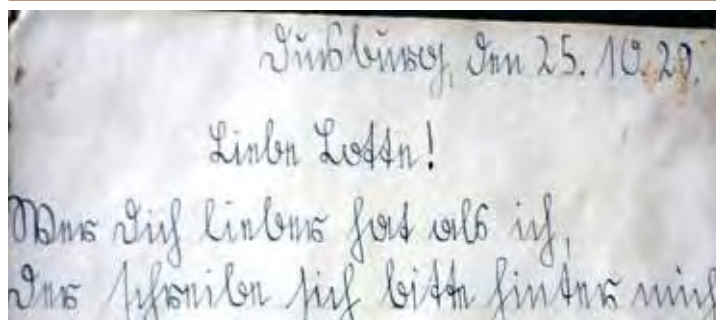 Duisburg, den 25. 10. 29.
Liebe Lotte!
Wer Dich lieber hat als ich,
Der schreibe sich bitte hinter mich